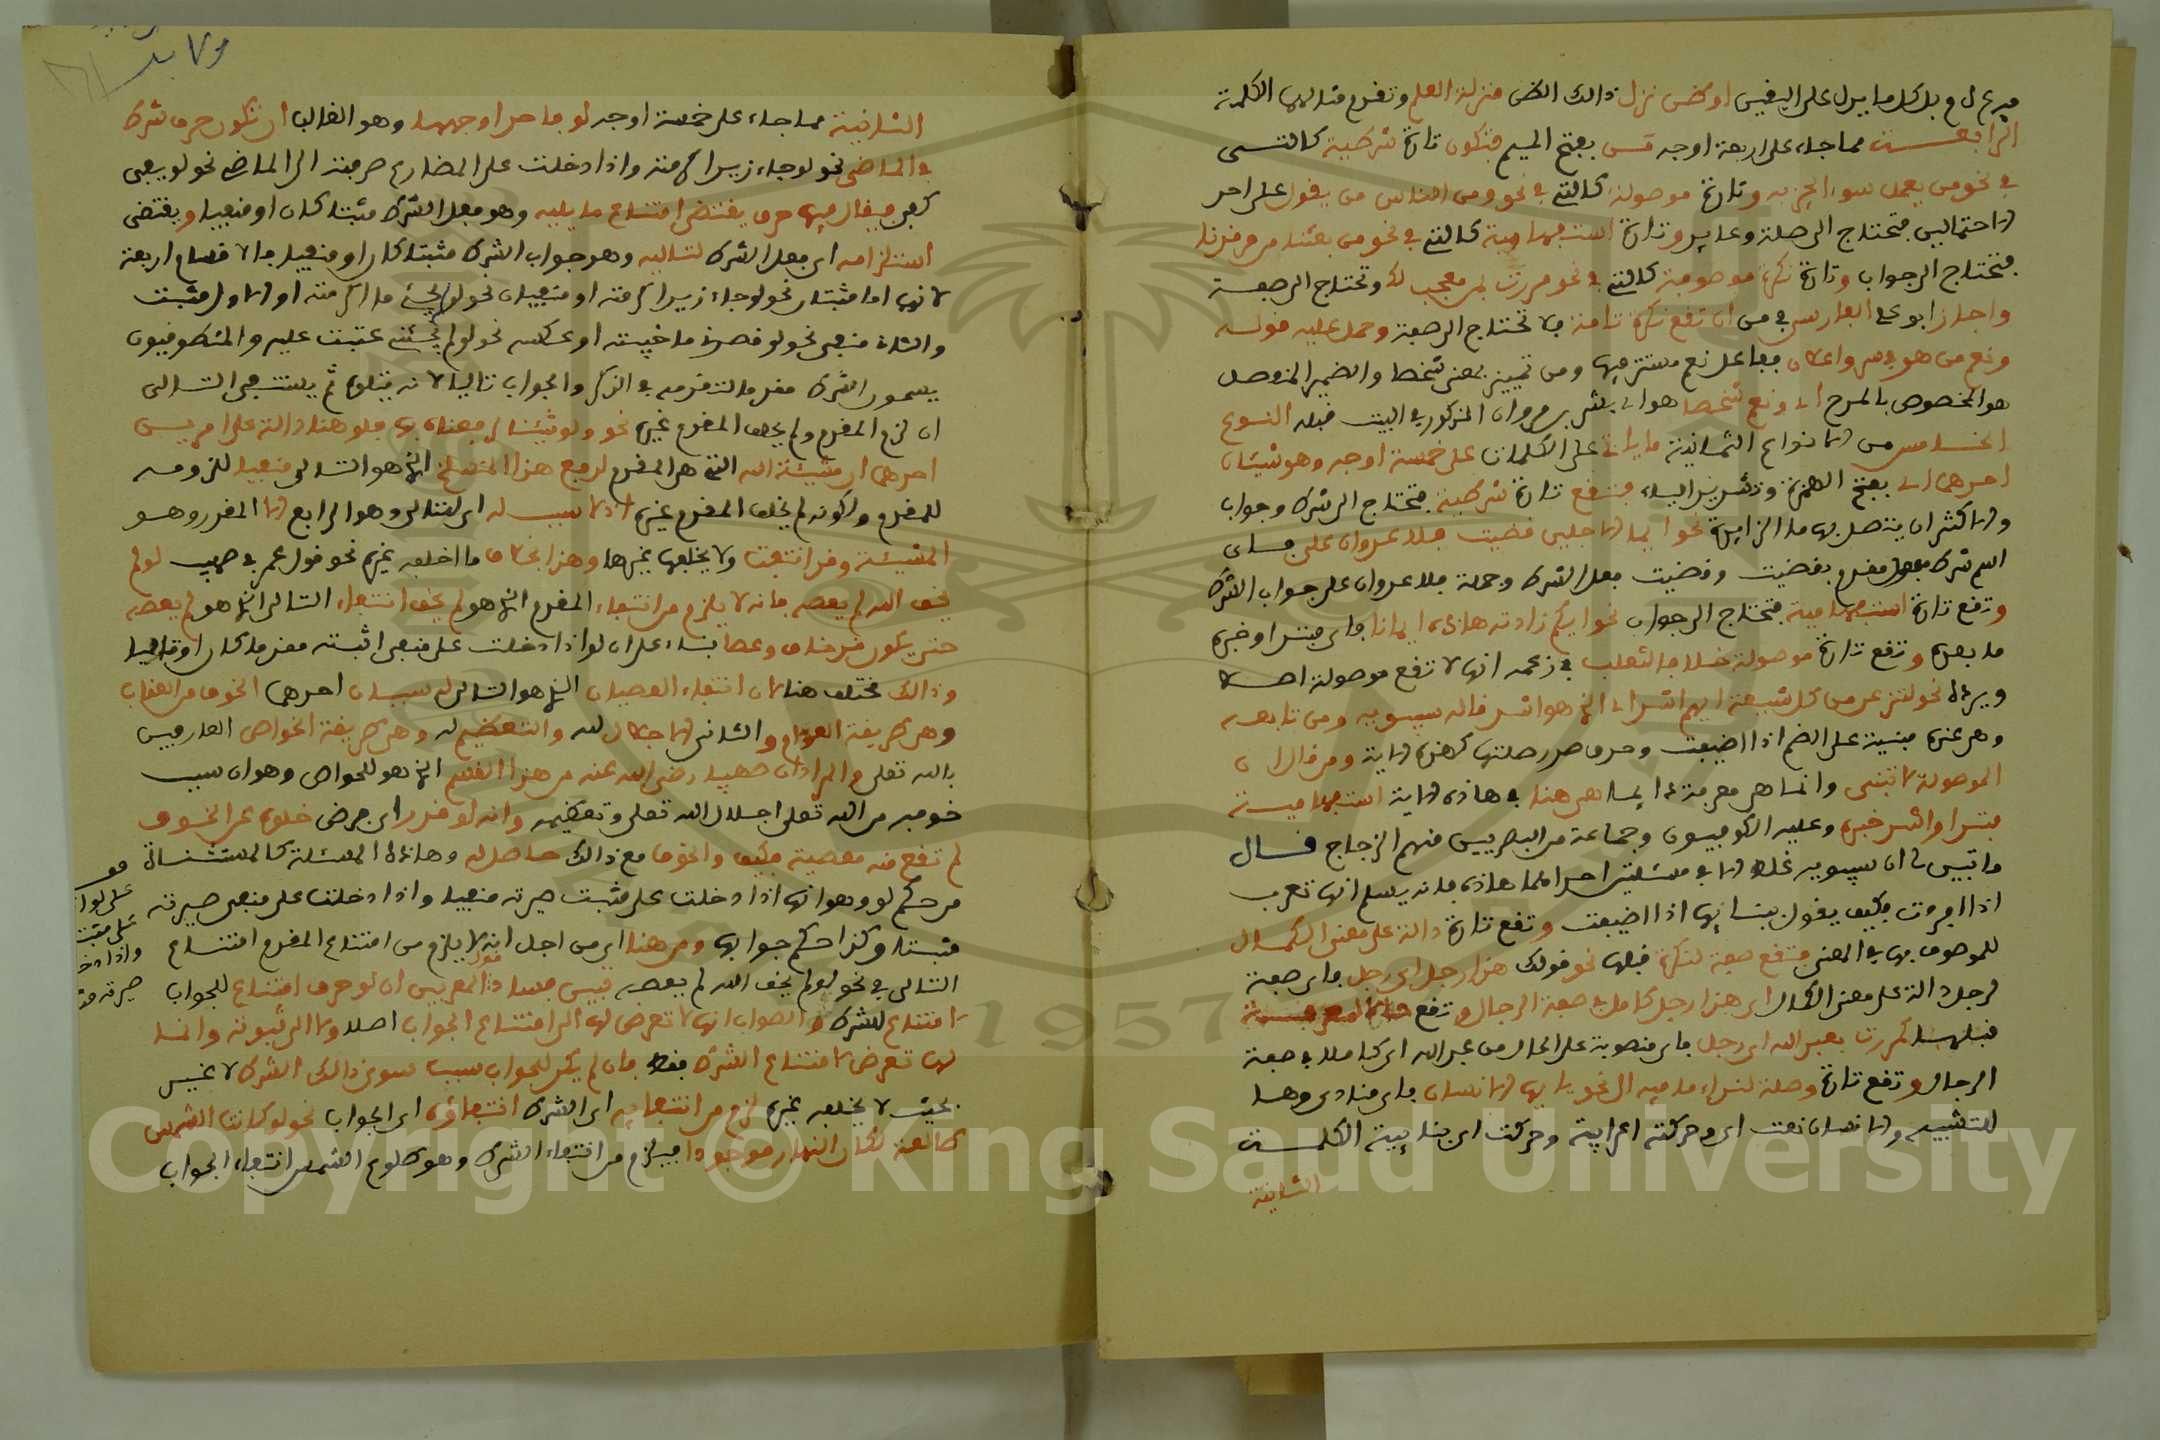 الرابعة مما جاء على اربعة اوجه من بفتح الميم فتكون تارة شرطية كالتي
في نحو من يعمل سوءا يجز به وتارة موصولة كالتي في نحو ومن الناس من يقول على احد
الاحتمالين فتحتاج الى صلة وعايد وتارة استفهامية كالتي في نحو من بعثنا من مرقدنا
فتحتاج الى جواب وتارة نكرة موصوفة كالتي في نحو مررت بمن معجب لك وتحتاج الى صفة
واجاز ابو على الفارسي في من ان تقع نكرة تامة فلا تحتاج الى صفة وحمل عليه قوله
ونعم من هو في سر واعلان ففاعل نعم مستتر فيها ومن تمييز بمعنى شخصا والضمير المنفصل
هو المخصوص بالمدح اي ونعم شخصا هو اي بشر بن مروان المذكور في البيت قبله النوع
الخامس من الانواع الثمانية ما ياتي من الكلمات على خمسة اوجه وهو شيئان
احدهما اي بفتح الهمزة وتشديد الياء فتقع تارة شرطية فتحتاج الى شرط وجواب
والاكثر ان يتصل بها ما الزايدة نحو ايما الاجلين قضيت فلا عدوان على فاي
اسم شرط مفعول مقدم بقضيت وقضيت فعل الشرط وجملة فلا عدوان على جواب الشرط
وتقع تارة استفهامية فتحتاج الى جواب نحو ايكم زادته هاذه ايمانا فاي مبتدا وخبره
ما بعده وتقع تارة موصولة خلافا لثعلب في زعمه انها لا تقع موصولة اصلا
ويرده نحو لننزعن من كل شيعة ايهم اشد اي الذي هو اشد قاله سيبويه ومن تابعه
وهي عنده مبنية على الضم اذا اضيفت وحذف صدر صلتها كهذه الاية ومن قال ان
الموصولة لا تبنى وانما هي معربة دايما هي هنا في هاذه الاية استفهامية
مبتدا واشد خبره وعليه الكوفيون وجماعة من البصريين منهم الزجاج قال
ما تبين لي ان سيبويه غلط الا في مسئلتين احداهما هاذه فانه يسلم انها تعرب
اذا افردت فكيف يقول ببنائها اذا اضيفت وتقع تارة دالة على معنى الكمال
للموصوف بها في المعنى فتقع صفة لنكرة قبلها نحو قولك هذا رجل اي رجل فاي صفة
لرجل دالة على معنى الكمال اي هذا رجل كامل في صفة الرجال وتقع حالا لمعرفة
قبلها كمررت بعبد الله اي رجل فاي منصوبة على الحال من عبد الله اي كاملا في صفة
الرجال وتقع تارة وصلة لنداء ما فيه ال نحو يا ايها الانسان فاي منادى وها
للتنبيه والانسان نعت اي وحركته اعرابية وحركت اي بنايية الكلمة
الثانية
الثانية مما جاء على خمسة اوجه لو فاحد اوجهها وهو الغالب ان تكون حرف شرط
في الماضى نحو لو جاء زيد اكرمته واذا دخلت على المضارع صرفته الى الماضي نحو لو يفي
كفى فيقال فيها حرف يقتضي امتناع ما يليه وهو فعل الشرط مثبتا كان او منفيا ويقتضي
استلزامه اي فعل الشرط لتاليه وهو جواب الشرط مثبتا كان او منفيا فالاقسام اربعة
لانهما اما مثبتان نحو لو جاء زيد اكرمته او منفيان نحو لو لم يجئ ما اكرمته او الاول مثبت
والثاني منفي نحو لو قصدني ما خيبته او عكسه نحو لو لم يجئني عتبت عليه والمنطقيون
يسمون الشرط مقدما لتقدمه في الذكر والجواب تاليا لانه يتلوه ثم ينتفي التالي
ان لزم المقدم ولم يخلف المقدم غيره نحو ولو شئنا لرفعناه بها فلو هنا دالة على امرين
احدهما ان مشيئة الله التي هي المقدم لرفع هذا المنسلخ الذي هو التالي منفية للزومه
للمقدم ولكونه لم يخلف المقدم غيره اذ لا سبب له اي للتالي وهو الرابع الا المقدم وهو
المشيئة وقد انتفت ولا يخلفها غيرها وهذا بخلاف ما اخلفه غيره نحو قول عمر في صهيب لو لم
يخف الله لم يعصه فانه لا يلزم من انتفاء المقدم الذي هو لم يخف انتفاء التالي الذي هو لم يعصه
حتى يكون قد خاف وعصا بناء على ان لو اذا دخلت على منفي اثبتته مقدما كان او تاليا
وذالك مختلف هنا لان انتفاء العصيان الذي هو التالي له سببان احدهما الخوف من العقاب
وهي طريقة العوام والثاني الاجلال لله والتعظيم له وهي طريقة الخواص العارفين
بالله تعلى والمراد ان صهيبا رضي الله عنه من هذا القسم الذي هو للخواص وهو ان سبب
خوفه من الله تعلى اجلال الله تعلى وتعظيمه وانه لو قدر اي فرض خلوه عن الخوف
لم تقع منه معصية فكيف والخوف مع ذالك حاصل له وهاذه المسئلة كالمستثناة
من حكم لو وهو انها اذا دخلت على مثبت صيرته منفيا واذا دخلت على منفي صيرته
مثبتا وكذا حكم جوابها ومن هنا اي من اجل انه لا يلزم من امتناع المقدم امتناع
التالي في نحو لو لم يخف الله لم يعصه تبين فساد قول المعربين ان لو حرف امتناع للجواب
لامتناع للشرط والصواب انها لا تعرض لها الى امتناع الجواب اصلا ولا الى ثبوته وانما
لها تعرض لامتناع الشرط فقط فان لم يكن للجواب سبب سوى ذالك الشرط لا غير
بحيث لا يخلفه غيره لزم من انتفائه اي الشرط انتفاؤه اي الجواب نحو لو كانت الشمس
طالعة لكان النهار موجودا فيلزم من انتفاء الشرط وهو طلوع الشمس انتفاء الجواب
1957
Copyright © King Saud University